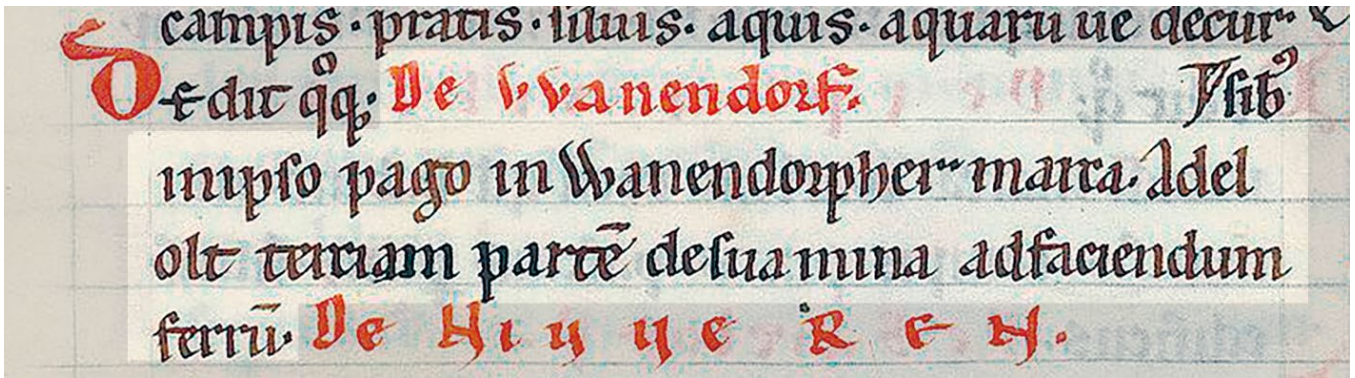 campis · pratis · siluis · aquis · aquarū ue decur
Dedit qͦqꝫ · De VVanendorf.
inipso pago in Wanendorpher marca. Adel
olt terciam partē desua mina adfaciendum
ferrū · De